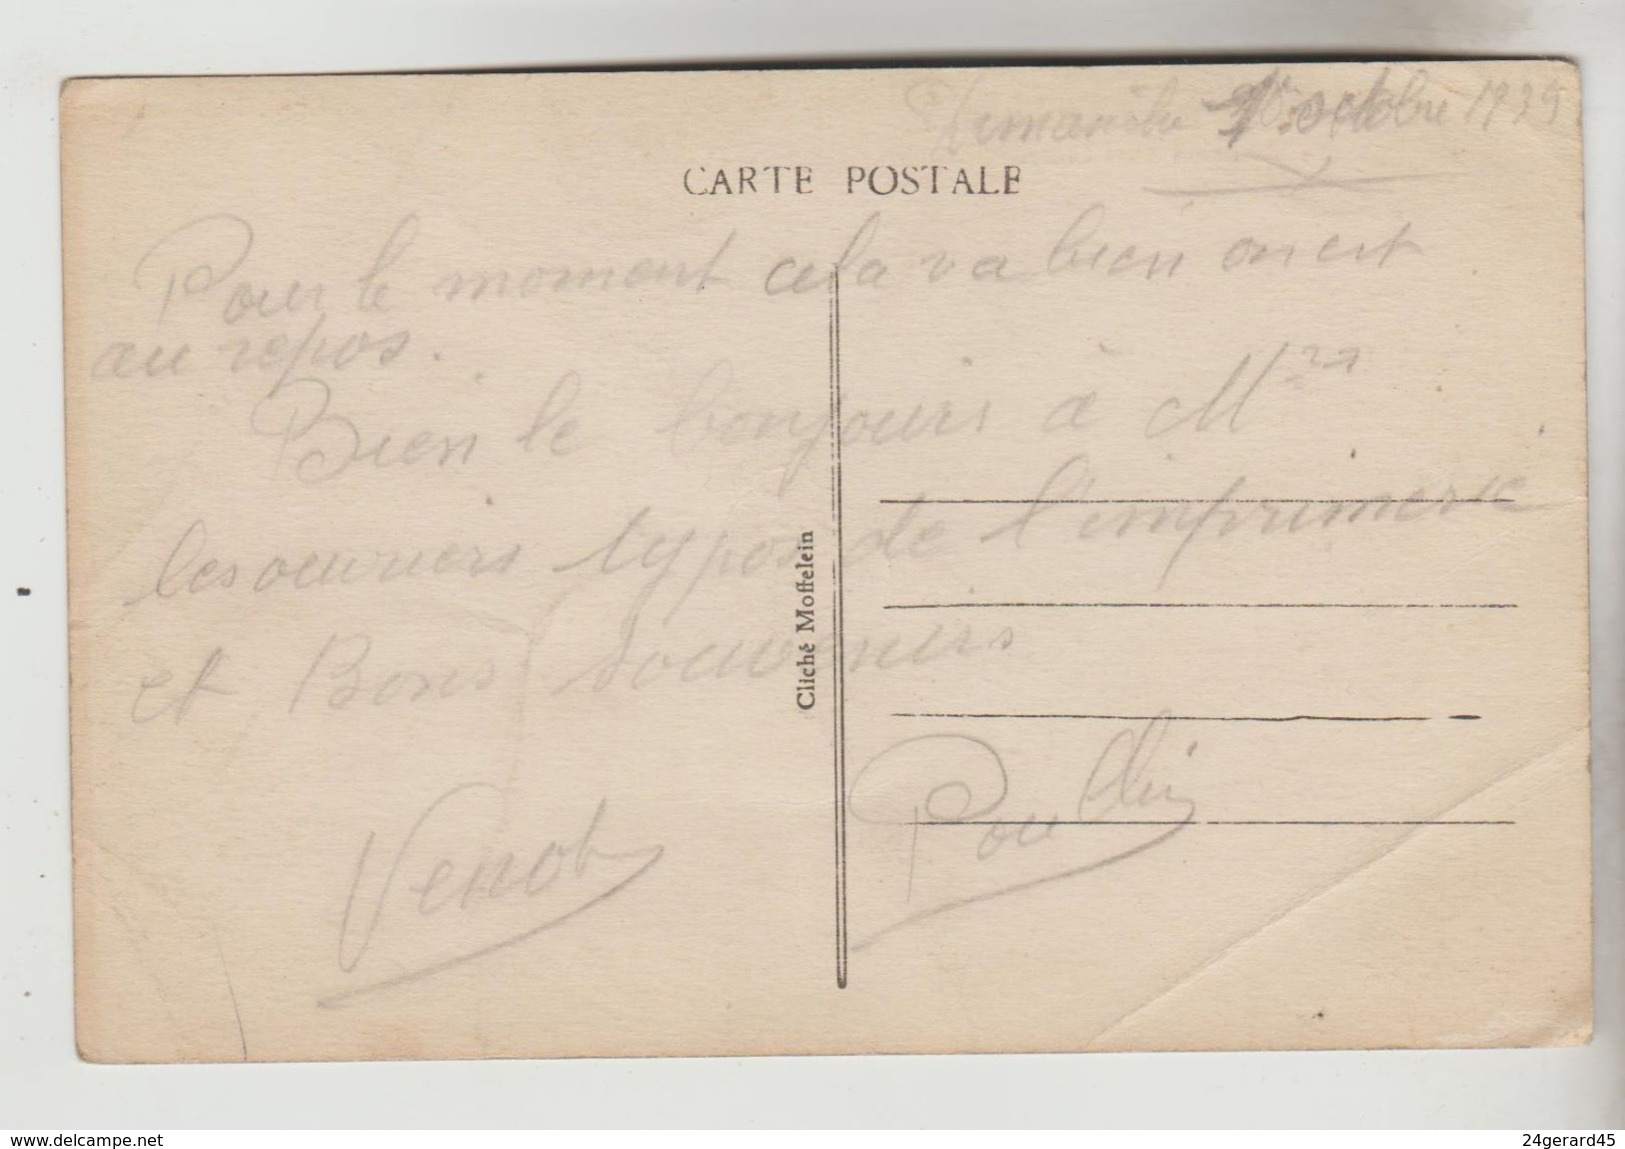 Dimanche 1er octobre 1939
CARTE POSTALE
Pour le moment cela va bien on est
au repos.
Bien le bonjour à Mrs
les ouvriers typos de l'imprimerie
et Bons souvenirs
Cliché Moffelein
Venot
www.delcampe.net
24gerard45